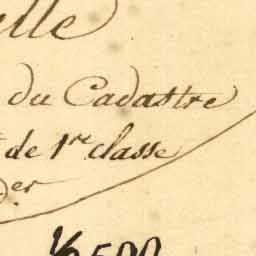 elle
du Cadastre
de 1re classe
der